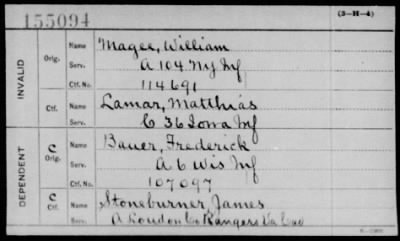 155094 (3-H-4)
INVALID
Orig. Name Magee, William
Serv. A 104 NY Inf
Ctf. No. 114691
Ctf. Name Lamar, Matthias
Serv. C 36 Iowa Inf
DEPENDENT
C Orig. Name Bauer, Frederick
Serv. A 6 Wis Inf
Ctf. No. 107097
C Ctf. Name Stoneburner, James
Serv. A Loudon Co Rangers Va Cav